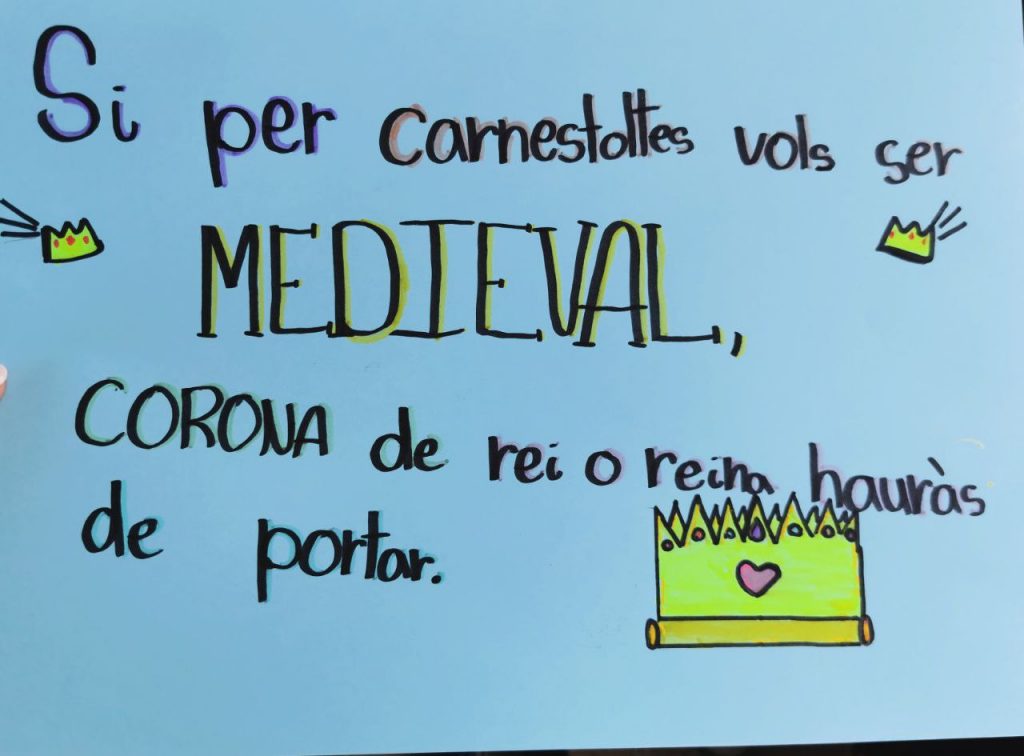 Si per carnestoltes vols ser
MEDIEVAL,
CORONA de rei o reina hauràs
de portar.